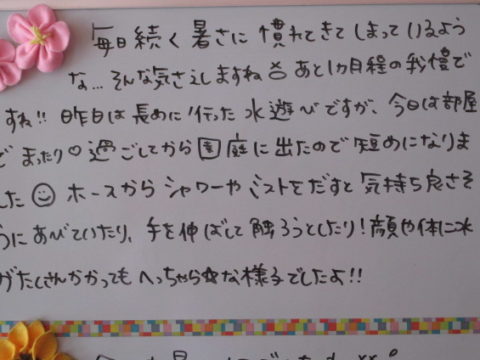 毎日続く暑さに慣れてきてしまっているよう
な…そんな気さえしますね あと1カ月程の我慢で
すね!! 昨日は長めに行った水遊びですが、今日は部屋
でまったり♡過ごしてから園庭に出たので短めになりま
した☺ ホースからシャワーやミストをだすと気持ち良さそ
うにあびていたり、手を伸ばして触ろうとしたり!顔や体に水
がたくさんかかってもへっちゃら☆な様子でしたよ!!